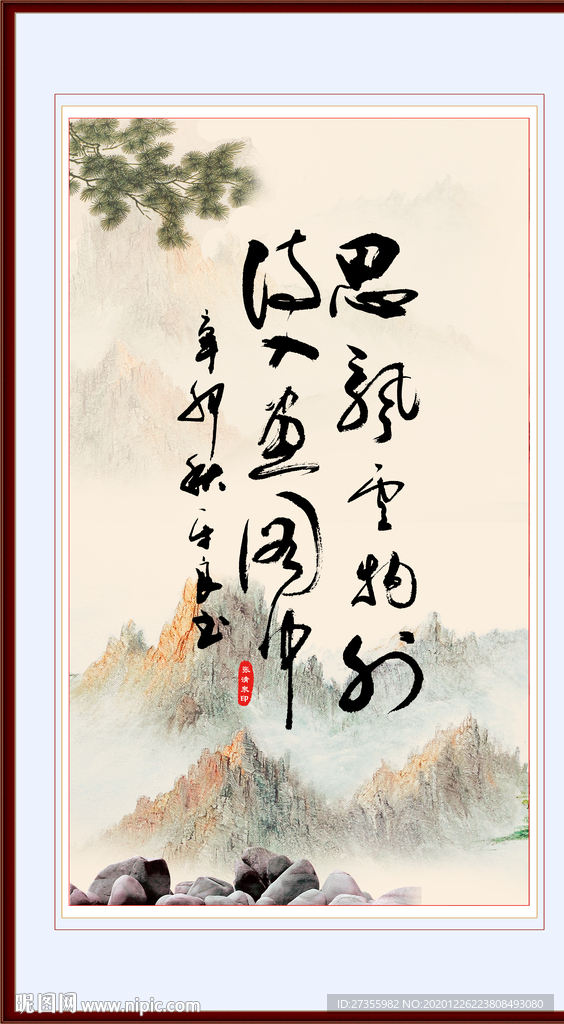 思飘云物外
诗入画图中
辛卯秋平良书
张清东印
昵图网 www.nipic.com
ID:27355982 NO:20201226223808493080